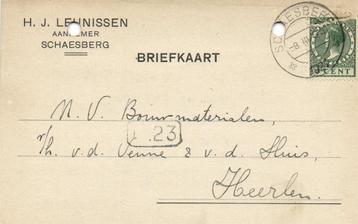 H. J. LEUNISSEN
AANNEMER
SCHAESBERG
BRIEFKAART
SCHAESBERG
-8.
CENT
N.V. Bouwmaterialen,
23
v/h. v.d. Venne & v.d. Huis,
Heerlen.